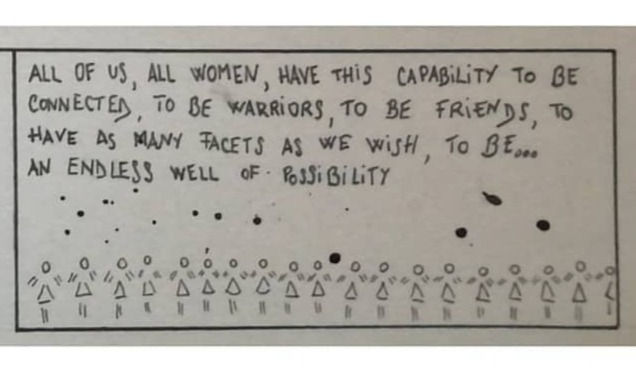 ALL OF US, ALL WOMEN, HAVE THiS CAPABiLiTY TO BE
CONNECTED, TO BE WARRiORS, TO BE FRiENDS, TO
HAVE AS MANY FACETS AS WE WiSH, TO BE...
AN ENDLESS WELL OF POSSiBiLiTY